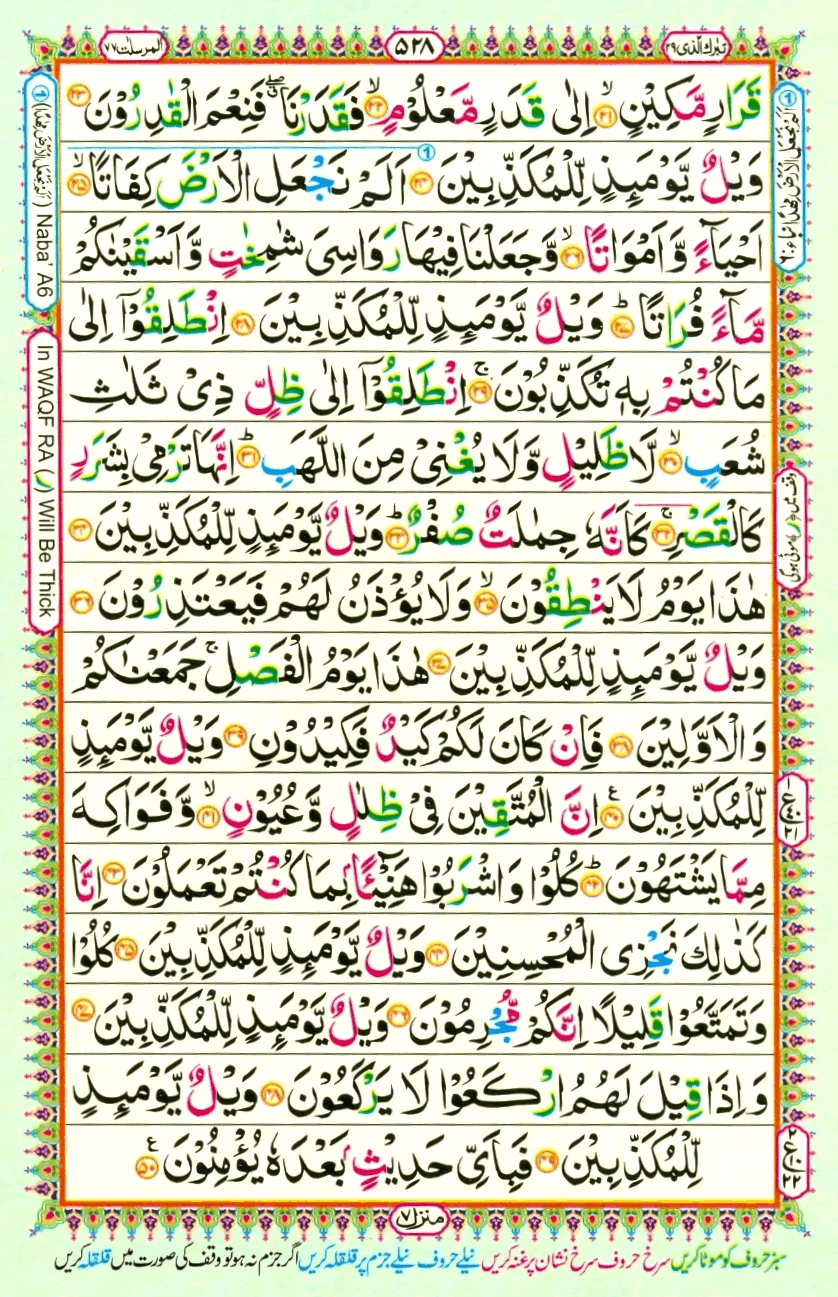 تبٰرك الّذی ٢٩
٥٢٨
المرسلٰت ٧٧
قَرَارٍ مَّكِیْنٍ ﴿٢١﴾ اِلٰى قَدَرٍ مَّعْلُوْمٍ ﴿٢٢﴾ فَقَدَرْنَا ۖۗ فَنِعْمَ الْقٰدِرُوْنَ ﴿٢٣﴾
وَیْلٌ یَّوْمَىِٕذٍ لِّلْمُكَذِّبِیْنَ ﴿٢٤﴾ اَلَمْ نَجْعَلِ الْاَرْضَ كِفَاتًا ﴿٢٥﴾
اَحْیَآءً وَّ اَمْوَاتًا ﴿٢٦﴾ وَّ جَعَلْنَا فِیْهَا رَوَاسِیَ شٰمِخٰتٍ وَّ اَسْقَیْنٰكُمْ
مَّآءً فُرَاتًا ﴿٢٧﴾ وَیْلٌ یَّوْمَىِٕذٍ لِّلْمُكَذِّبِیْنَ ﴿٢٨﴾ اِنْطَلِقُوْۤا اِلٰى
مَا كُنْتُمْ بِهٖ تُكَذِّبُوْنَ ﴿٢٩﴾ اِنْطَلِقُوْۤا اِلٰى ظِلٍّ ذِیْ ثَلٰثِ
شُعَبٍ ﴿٣٠﴾ لَّا ظَلِیْلٍ وَّ لَا یُغْنِیْ مِنَ اللَّهَبِ ﴿٣١﴾ اِنَّهَا تَرْمِیْ بِشَرَرٍ
كَالْقَصْرِ ﴿٣٢﴾ كَاَنَّهٗ جِمٰلَتٌ صُفْرٌ ﴿٣٣﴾ وَیْلٌ یَّوْمَىِٕذٍ لِّلْمُكَذِّبِیْنَ ﴿٣٤﴾
هٰذَا یَوْمُ لَا یَنْطِقُوْنَ ﴿٣٥﴾ وَ لَا یُؤْذَنُ لَهُمْ فَیَعْتَذِرُوْنَ ﴿٣٦﴾
وَیْلٌ یَّوْمَىِٕذٍ لِّلْمُكَذِّبِیْنَ ﴿٣٧﴾ هٰذَا یَوْمُ الْفَصْلِ ۚ جَمَعْنٰكُمْ
وَ الْاَوَّلِیْنَ ﴿٣٨﴾ فَاِنْ كَانَ لَكُمْ كَیْدٌ فَكِیْدُوْنِ ﴿٣٩﴾ وَیْلٌ یَّوْمَىِٕذٍ
لِّلْمُكَذِّبِیْنَ ﴿٤٠﴾ اِنَّ الْمُتَّقِیْنَ فِیْ ظِلٰلٍ وَّ عُیُوْنٍ ﴿٤١﴾ وَّ فَوَاكِهَ
مِمَّا یَشْتَهُوْنَ ﴿٤٢﴾ كُلُوْا وَ اشْرَبُوْا هَنِیْٓــٴًۢا بِمَا كُنْتُمْ تَعْمَلُوْنَ ﴿٤٣﴾ اِنَّا
كَذٰلِكَ نَجْزِی الْمُحْسِنِیْنَ ﴿٤٤﴾ وَیْلٌ یَّوْمَىِٕذٍ لِّلْمُكَذِّبِیْنَ ﴿٤٥﴾ كُلُوْا
وَ تَمَتَّعُوْا قَلِیْلًا اِنَّكُمْ مُّجْرِمُوْنَ ﴿٤٦﴾ وَیْلٌ یَّوْمَىِٕذٍ لِّلْمُكَذِّبِیْنَ ﴿٤٧﴾
وَ اِذَا قِیْلَ لَهُمُ ارْكَعُوْا لَا یَرْكَعُوْنَ ﴿٤٨﴾ وَیْلٌ یَّوْمَىِٕذٍ
لِّلْمُكَذِّبِیْنَ ﴿٤٩﴾ فَبِاَیِّ حَدِیْثٍۭ بَعْدَهٗ یُؤْمِنُوْنَ ﴿٥٠﴾
Naba' A6
In WAQF RA (ر) Will Be Thick
منزل ٧
سبز حروف کو موٹا کریں سرخ حروف سرخ نشان پر غنہ کریں نیلے حروف نیلے جزم پر قلقلہ کریں اگر جزم نہ ہو تو وقف کی صورت میں قلقلہ کریں